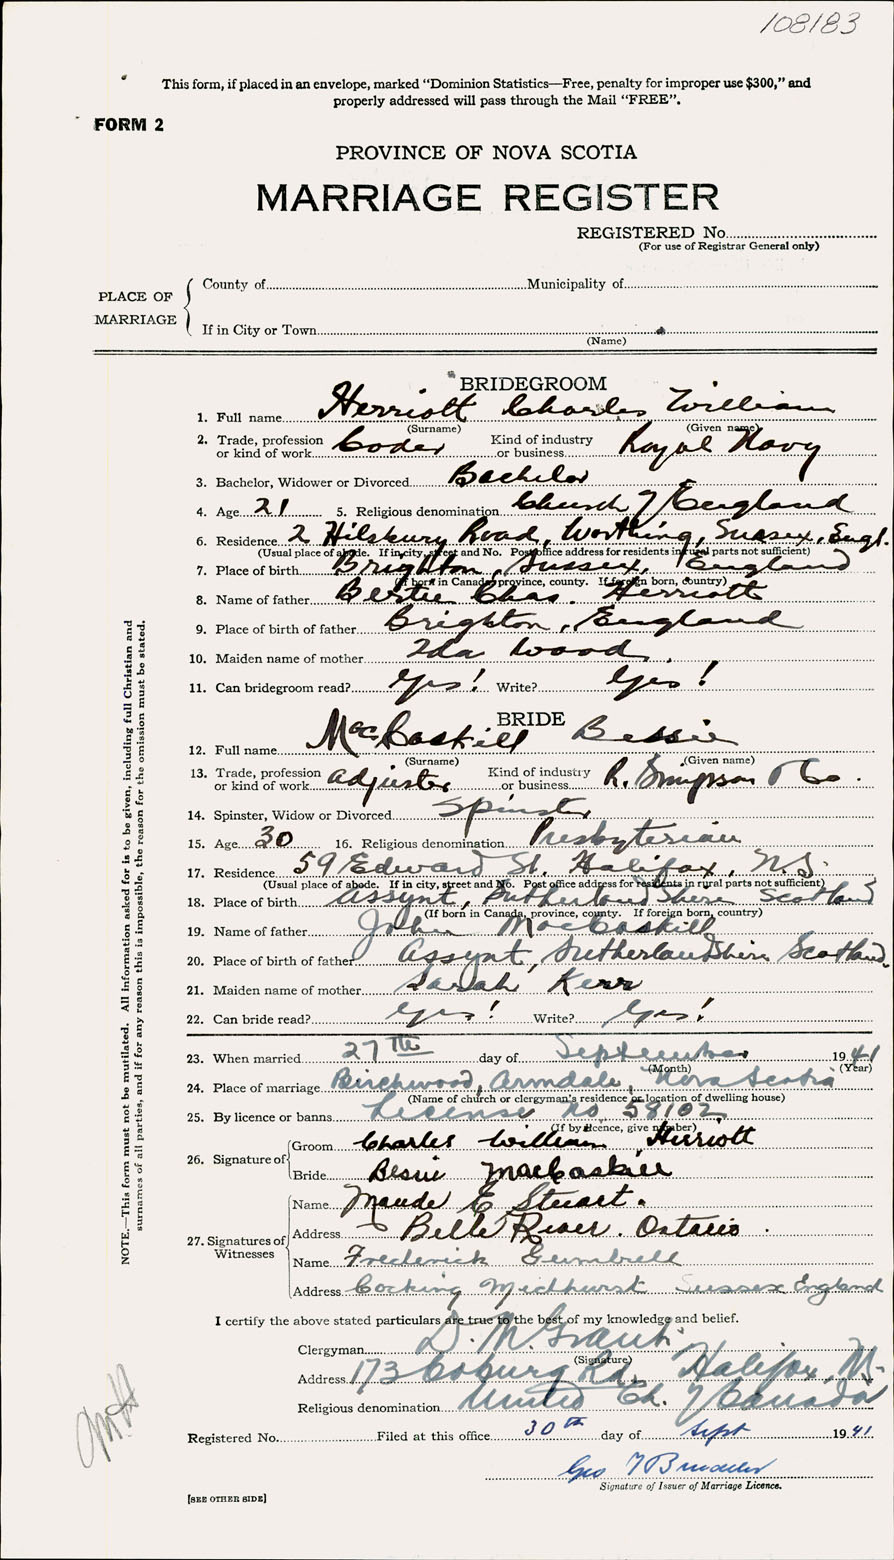 108183
This form, if placed in an envelope, marked "Dominion Statistics—Free, penalty for improper use $300," and
properly addressed will pass through the Mail "FREE".
FORM 2
PROVINCE OF NOVA SCOTIA
MARRIAGE REGISTER
REGISTERED No.
(For use of Registrar General only)
PLACE OF MARRIAGE
County of Municipality of
If in City or Town
(Name)
BRIDEGROOM
1. Full name Herriott Charles William
(Surname) (Given name)
2. Trade, profession or kind of work Coder Kind of industry or business Royal Navy
3. Bachelor, Widower or Divorced Bachelor
4. Age 21 5. Religious denomination Church of England
6. Residence 2 Hilsbury Road, Worthing, Sussex, Engl.
(Usual place of abode. If in city, street and No. Post office address for residents in rural parts not sufficient)
7. Place of birth Brighton, Sussex, England
(If born in Canada, province, county. If foreign born, country)
8. Name of father Bertie Chas. Herriott
9. Place of birth of father Brighton, England
10. Maiden name of mother Ida Wood.
11. Can bridegroom read? Yes! Write? Yes!
BRIDE
12. Full name MacCaskill Bessie
(Surname) (Given name)
13. Trade, profession or kind of work adjuster Kind of industry or business R. Simpson & Co.
14. Spinster, Widow or Divorced Spinster
15. Age 30 16. Religious denomination Presbyterian
17. Residence 59 Edward St. Halifax, N.S.
(Usual place of abode. If in city, street and No. Post office address for residents in rural parts not sufficient)
18. Place of birth Assynt, Sutherlandshire Scotland
(If born in Canada, province, county. If foreign born, country)
19. Name of father John MacCaskill
20. Place of birth of father Assynt, Sutherlandshire Scotland.
21. Maiden name of mother Sarah Kerr
22. Can bride read? Yes! Write? Yes!
23. When married 27th day of September 1941
(Month) (Year)
24. Place of marriage Birchwood, Armdale, Nova Scotia
(Name of church or clergyman's residence or location of dwelling house)
25. By licence or banns License no 58102
(If by licence, give number)
26. Signature of
Groom Charles William Herriott
Bride Bessie MacCaskill
27. Signatures of Witnesses
Name Maude E Stuart.
Address Belle River. Ontario.
Name Frederick Gumbrell
Address Cocking Midhurst Sussex England
I certify the above stated particulars are true to the best of my knowledge and belief.
Clergyman D. M. Grant.
(Signature)
Address 173 Coburg Rd. Halifax, N.
Religious denomination United Ch. of Canada
Registered No. Filed at this office 30th day of Sept 1941
Geo
Signature of Issuer of Marriage Licence.
[SEE OTHER SIDE]
NOTE.—This form must not be mutilated. All information asked for is to be given, including full Christian and
surnames of all parties, and if for any reason this is impossible, the reason for the omission must be stated.